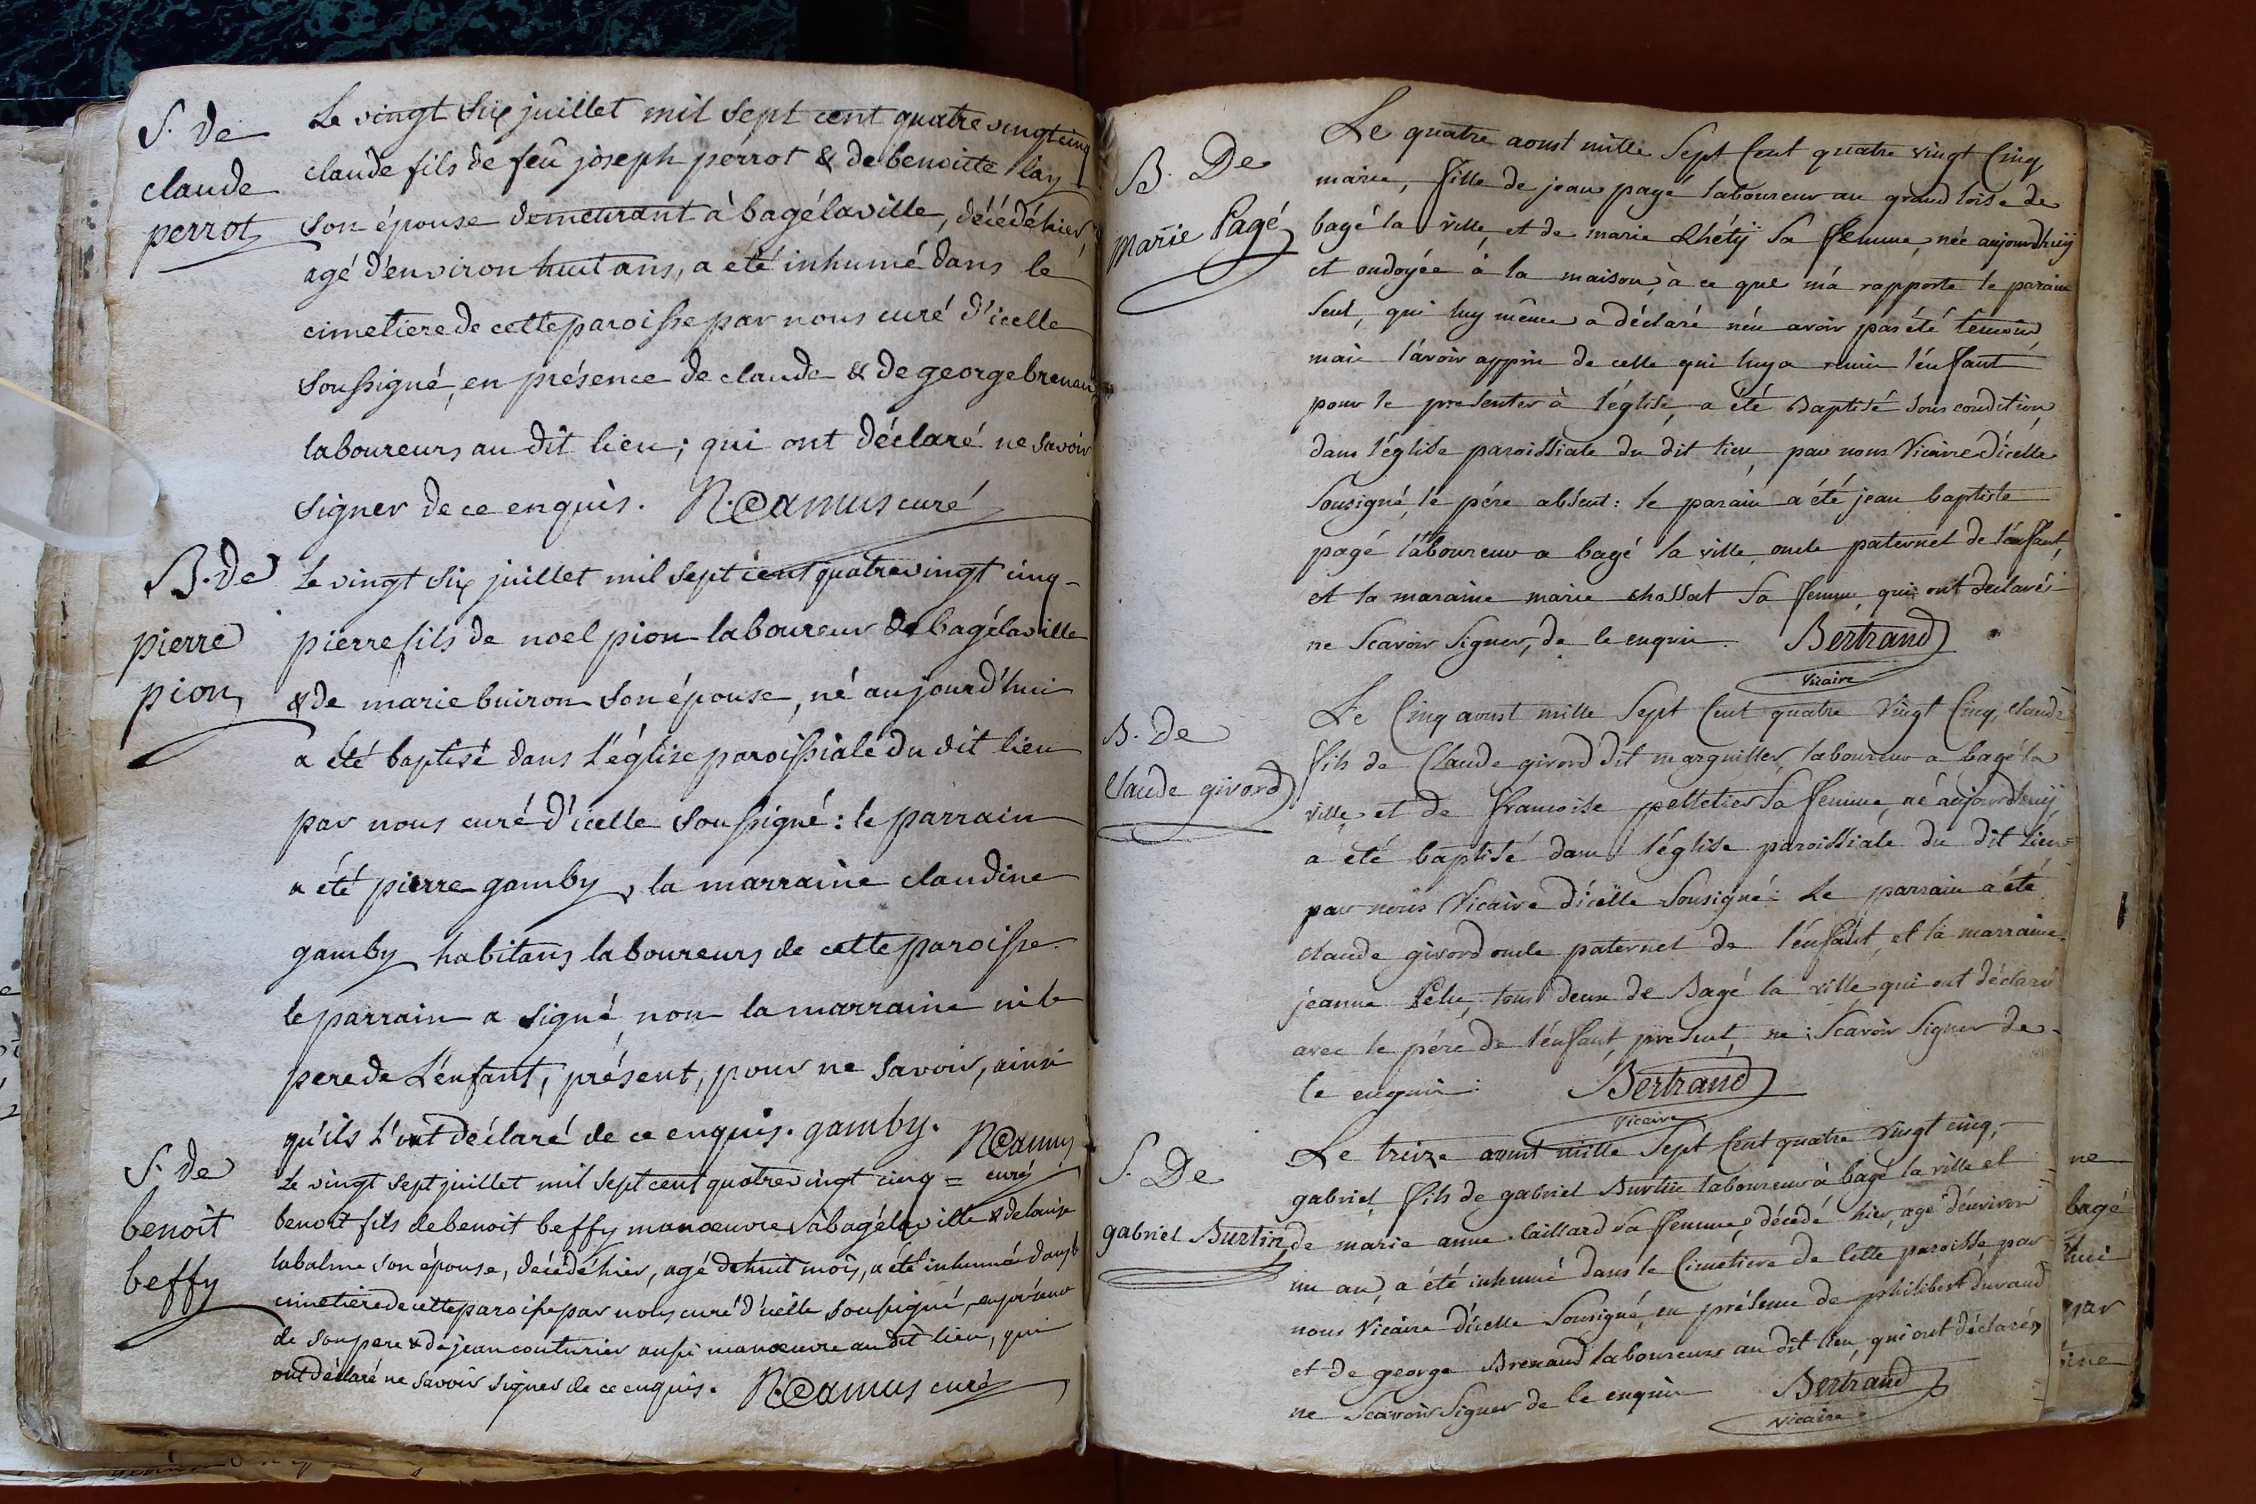 S. de
claude
perrot
Le vingt six juillet mil sept cent quatre vingt cinq
claude fils de feû joseph perrot & de benoitte
son épouse demeurant à bagélaville, décédé hier,
agé d'environ huit ans, a été inhumé dans le
cimetiere de cette paroisse par nous curé d'icelle
soussigné, en présence de claude & de george brenau
laboureurs au dit lieu; qui ont déclaré ne savoir
signer de ce enquis. N. Camus curé
B. de
pierre
pion
Le vingt six juillet mil sept cent quatre vingt cinq
pierre fils de noel pion laboureur de bagélaville
& de marie buiron son épouse, né aujourd'hui
a été baptisé dans l'église paroissiale du dit lieu
par nous curé d'icelle soussigné: le parrain
a été pierre gamby, la marraine claudine
gamby habitans laboureurs de cette paroisse.
le parrain a signé, non la marraine ni le
pere de l'enfant, présent, pour ne savoir, ainsi
qu'ils l'ont déclaré de ce enquis. gamby. N. Camus
curé
S. de
benoit
beffy
Le vingt sept juillet mil sept cent quatre vingt cinq =
benoit fils de benoit beffy manœuvre à bagélaville & de louise
labalme son épouse, décédé hier, agé de huit mois, a été inhumé dans le
cimetiere de cette paroisse par nous curé d'icelle soussigné, en présence
de son pere & de jean couturier aussi manœuvre au dit lieu, qui
ont déclaré ne savoir signer de ce enquis. N. Camus curé
B. De
Marie Pagé
Le quatre aoust mille Sept Cent quatre vingt Cinq
marie, fille de jean pagé laboureur au grand loise de
bagé la ville, et de marie Rhétÿ sa femme, née aujourdhuÿ
et ondoyée à la maison, à ce que m'a rapporte le parain
seul, qui luy même a déclaré n'en avoir pas été temoin,
mais l'avoir appris de celle qui luy a remis l'enfant
pour le presenter à l'église, a été Baptisé sous condition,
dans l'église paroissiale du dit lieu, par nous Vicaire d'icelle
Sousigné, le pére absent: le parain a été jean baptiste
pagé laboureur a bagé la ville, oncle paternel de l'enfant,
et la maraine marie chossat Sa femme, qui ont declarés
ne Scavoir Signer, de ce enquis. Bertrand
Vicaire
B. De
Claude givord
Le Cinq aoust mille Sept Cent quatre Vingt Cinq, claude
fils de Claude givord dit marguiller, laboureur a bagé la
ville, et de francoise pelletier Sa femme, né aujourdhuÿ
a été baptisé dans l'église paroissiale du dit Lieu
par nous Vicaire d'icelle Sousigné: Le parrain a été
claude givord oncle paternel de l'enfant, et la marraine
jeanne Pelu, tous deux de Bagé la ville qui ont déclaré
avec le pére de l'enfant, present, ne Scavoir Signer de
ce enquis: Bertrand
Vicaire
S. De
gabriel Burtin
Le treize aoust mille Sept Cent quatre vingt cinq,
gabriel, fils de gabriel Burtin laboureur à bagé la ville et
de marie anne laillard sa femme, décédé hier, agé d'environ
un an, a été inhumé dans le Cimetiere de cette paroisse par
nous Vicaire d'icelle Sousigné, en présence de philibert durand
et de george Brenaud laboureurs au dit lieu, qui ont déclarés
ne Scavoir Signer de ce enquis Bertrand
Vicaire
ne
bagé
hui
par